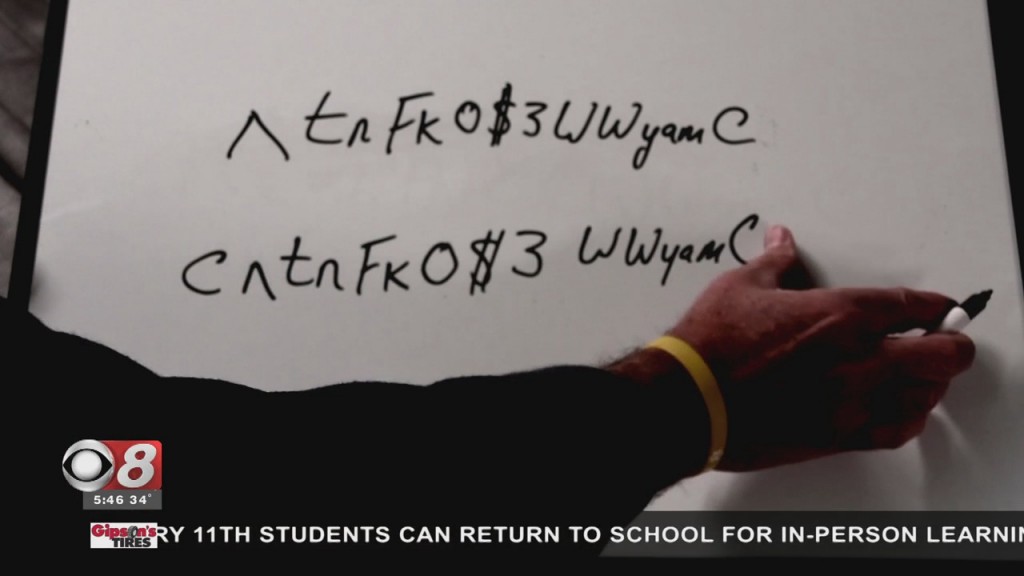 ΛtnFkO$3WWyamC
CΛtnFkO$3 WWyamC
8
5:46 34°
Gipson's TIRES
RY 11TH STUDENTS CAN RETURN TO SCHOOL FOR IN-PERSON LEARNIN